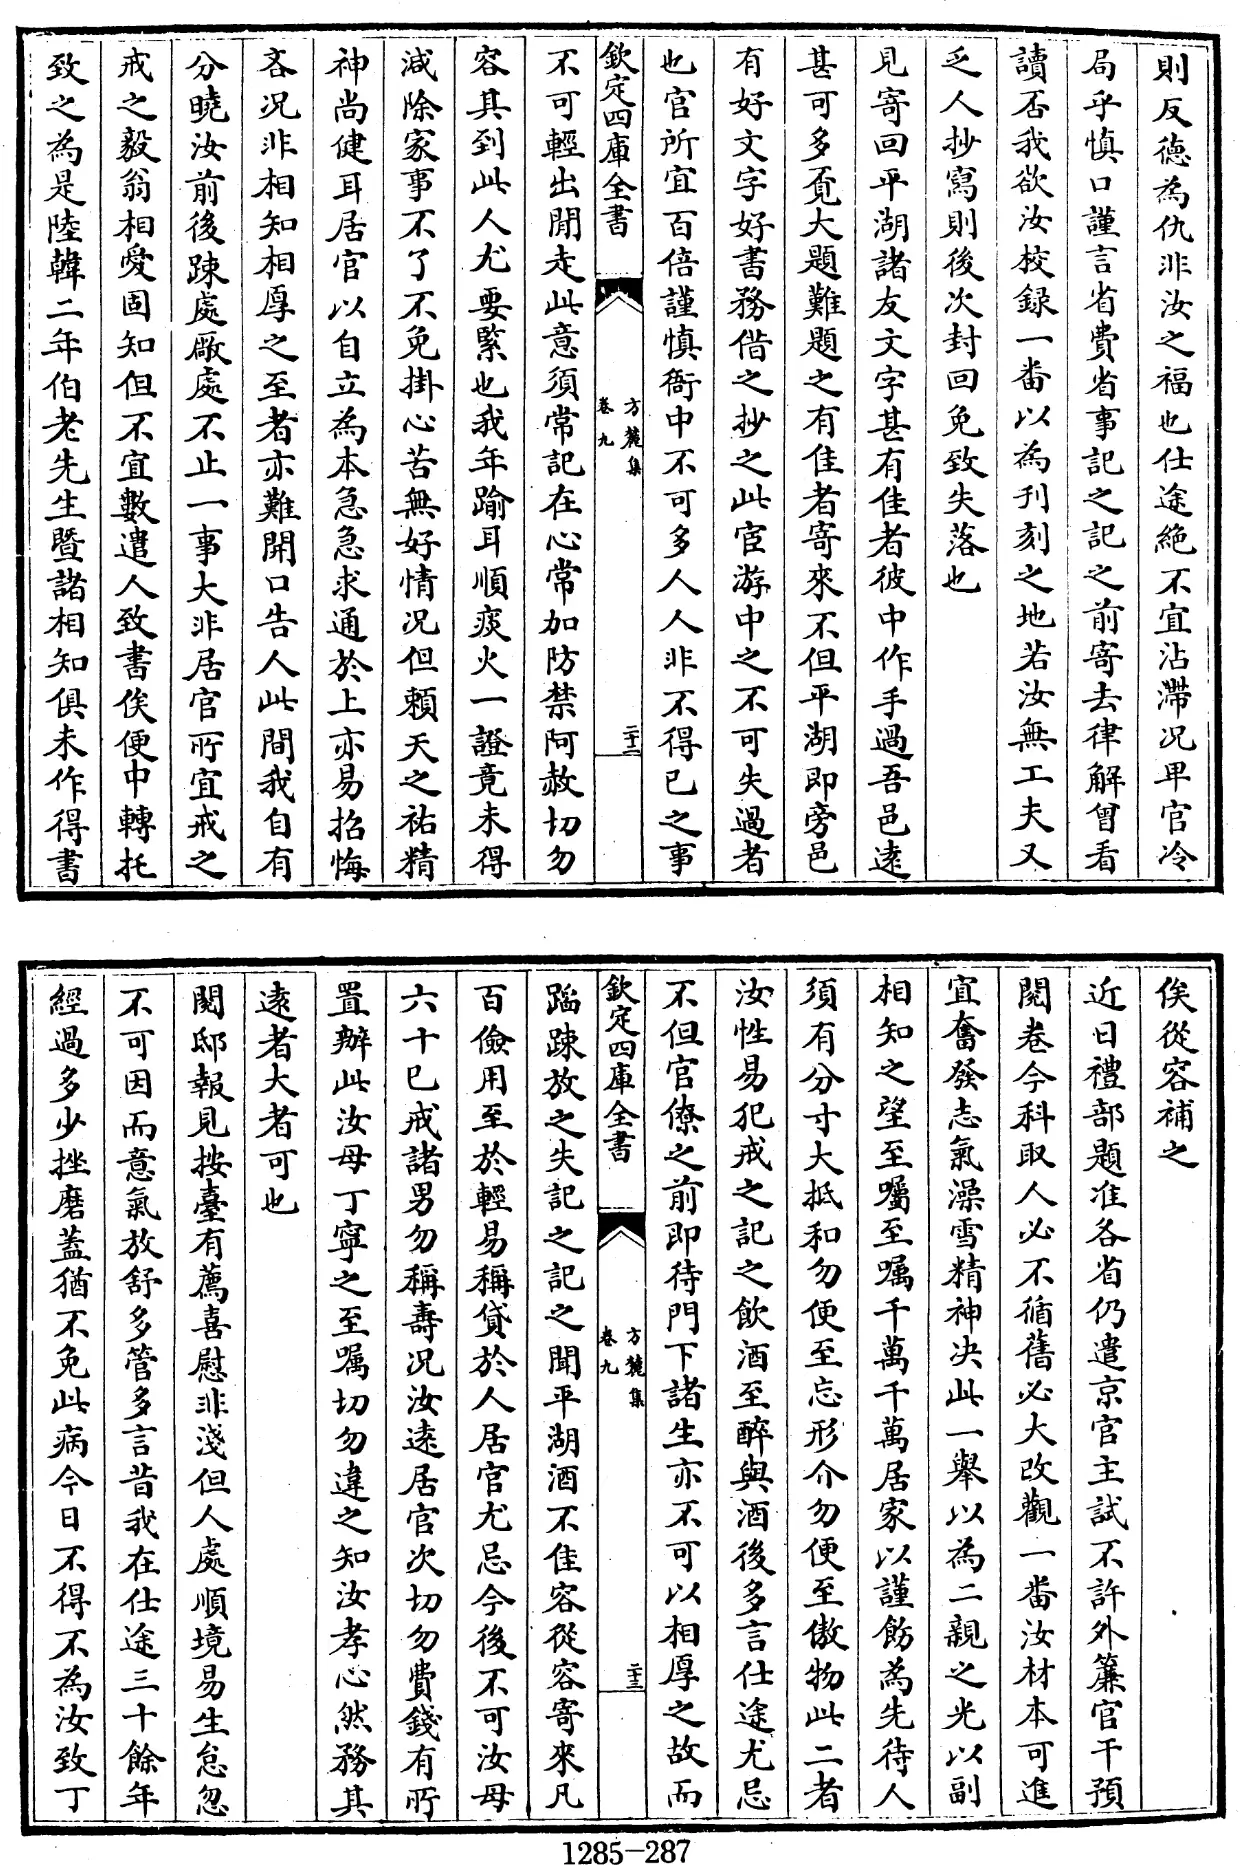 則反德為仇非汝之福也仕途絶不宜沾滯况卑官冷
局乎慎口謹言省費省事記之記之前寄去律解曾看
讀否我欲汝校録一番以為刋刻之地若汝無工夫又
乏人抄寫則後次封回免致失落也
見寄回平湖諸友文字甚有佳者彼中作手過吾邑逺
甚可多覔大題難題之有佳者寄來不但平湖即旁邑
有好文字好書務借之抄之此宦游中之不可失過者
也官所宜百倍謹慎衙中不可多人人非不得已之事
欽定四庫全書
方麓集
卷九
二十二
不可輕出閒走此意須常記在心常加防禁阿赦切勿
容其到此人尤要緊也我年踰耳順痰火一證竟未得
減除家事不了不免掛心苦無好情况但賴天之祐精
神尚健耳居官以自立為本急急求通於上亦易招悔
吝况非相知相厚之至者亦難開口告人此間我自有
分曉汝前後踈處厰處不止一事大非居官所宜戒之
戒之毅翁相愛固知但不宜數遣人致書俟便中轉托
致之為是陸韓二年伯老先生暨諸相知俱未作得書
俟從容補之
近日禮部題准各省仍遣京官主試不許外簾官干預
閱卷今科取人必不循舊必大改觀一番汝材本可進
宜奮發志氣澡雪精神決此一舉以為二親之光以副
相知之望至囑至嘱千萬千萬居家以謹飭為先待人
須有分寸大抵和勿便至忘形介勿便至傲物此二者
汝性易犯戒之記之飲酒至醉與酒後多言仕途尤忌
不但官僚之前即待門下諸生亦不可以相厚之故而
欽定四庫全書
方麓集
卷九
二十三
蹈踈放之失記之記之聞平湖酒不佳容從容寄來凡
百儉用至於輕易稱貸於人居官尤忌今後不可汝母
六十巳戒諸男勿稱壽况汝逺居官次切勿費錢有所
置辦此汝母丁寧之至嘱切勿違之知汝孝心然務其
逺者大者可也
閱邸報見按臺有薦喜慰非淺但人處順境易生怠忽
不可因而意氣放舒多管多言昔我在仕途三十餘年
經過多少挫磨葢猶不免此病今日不得不為汝致丁
1285-287